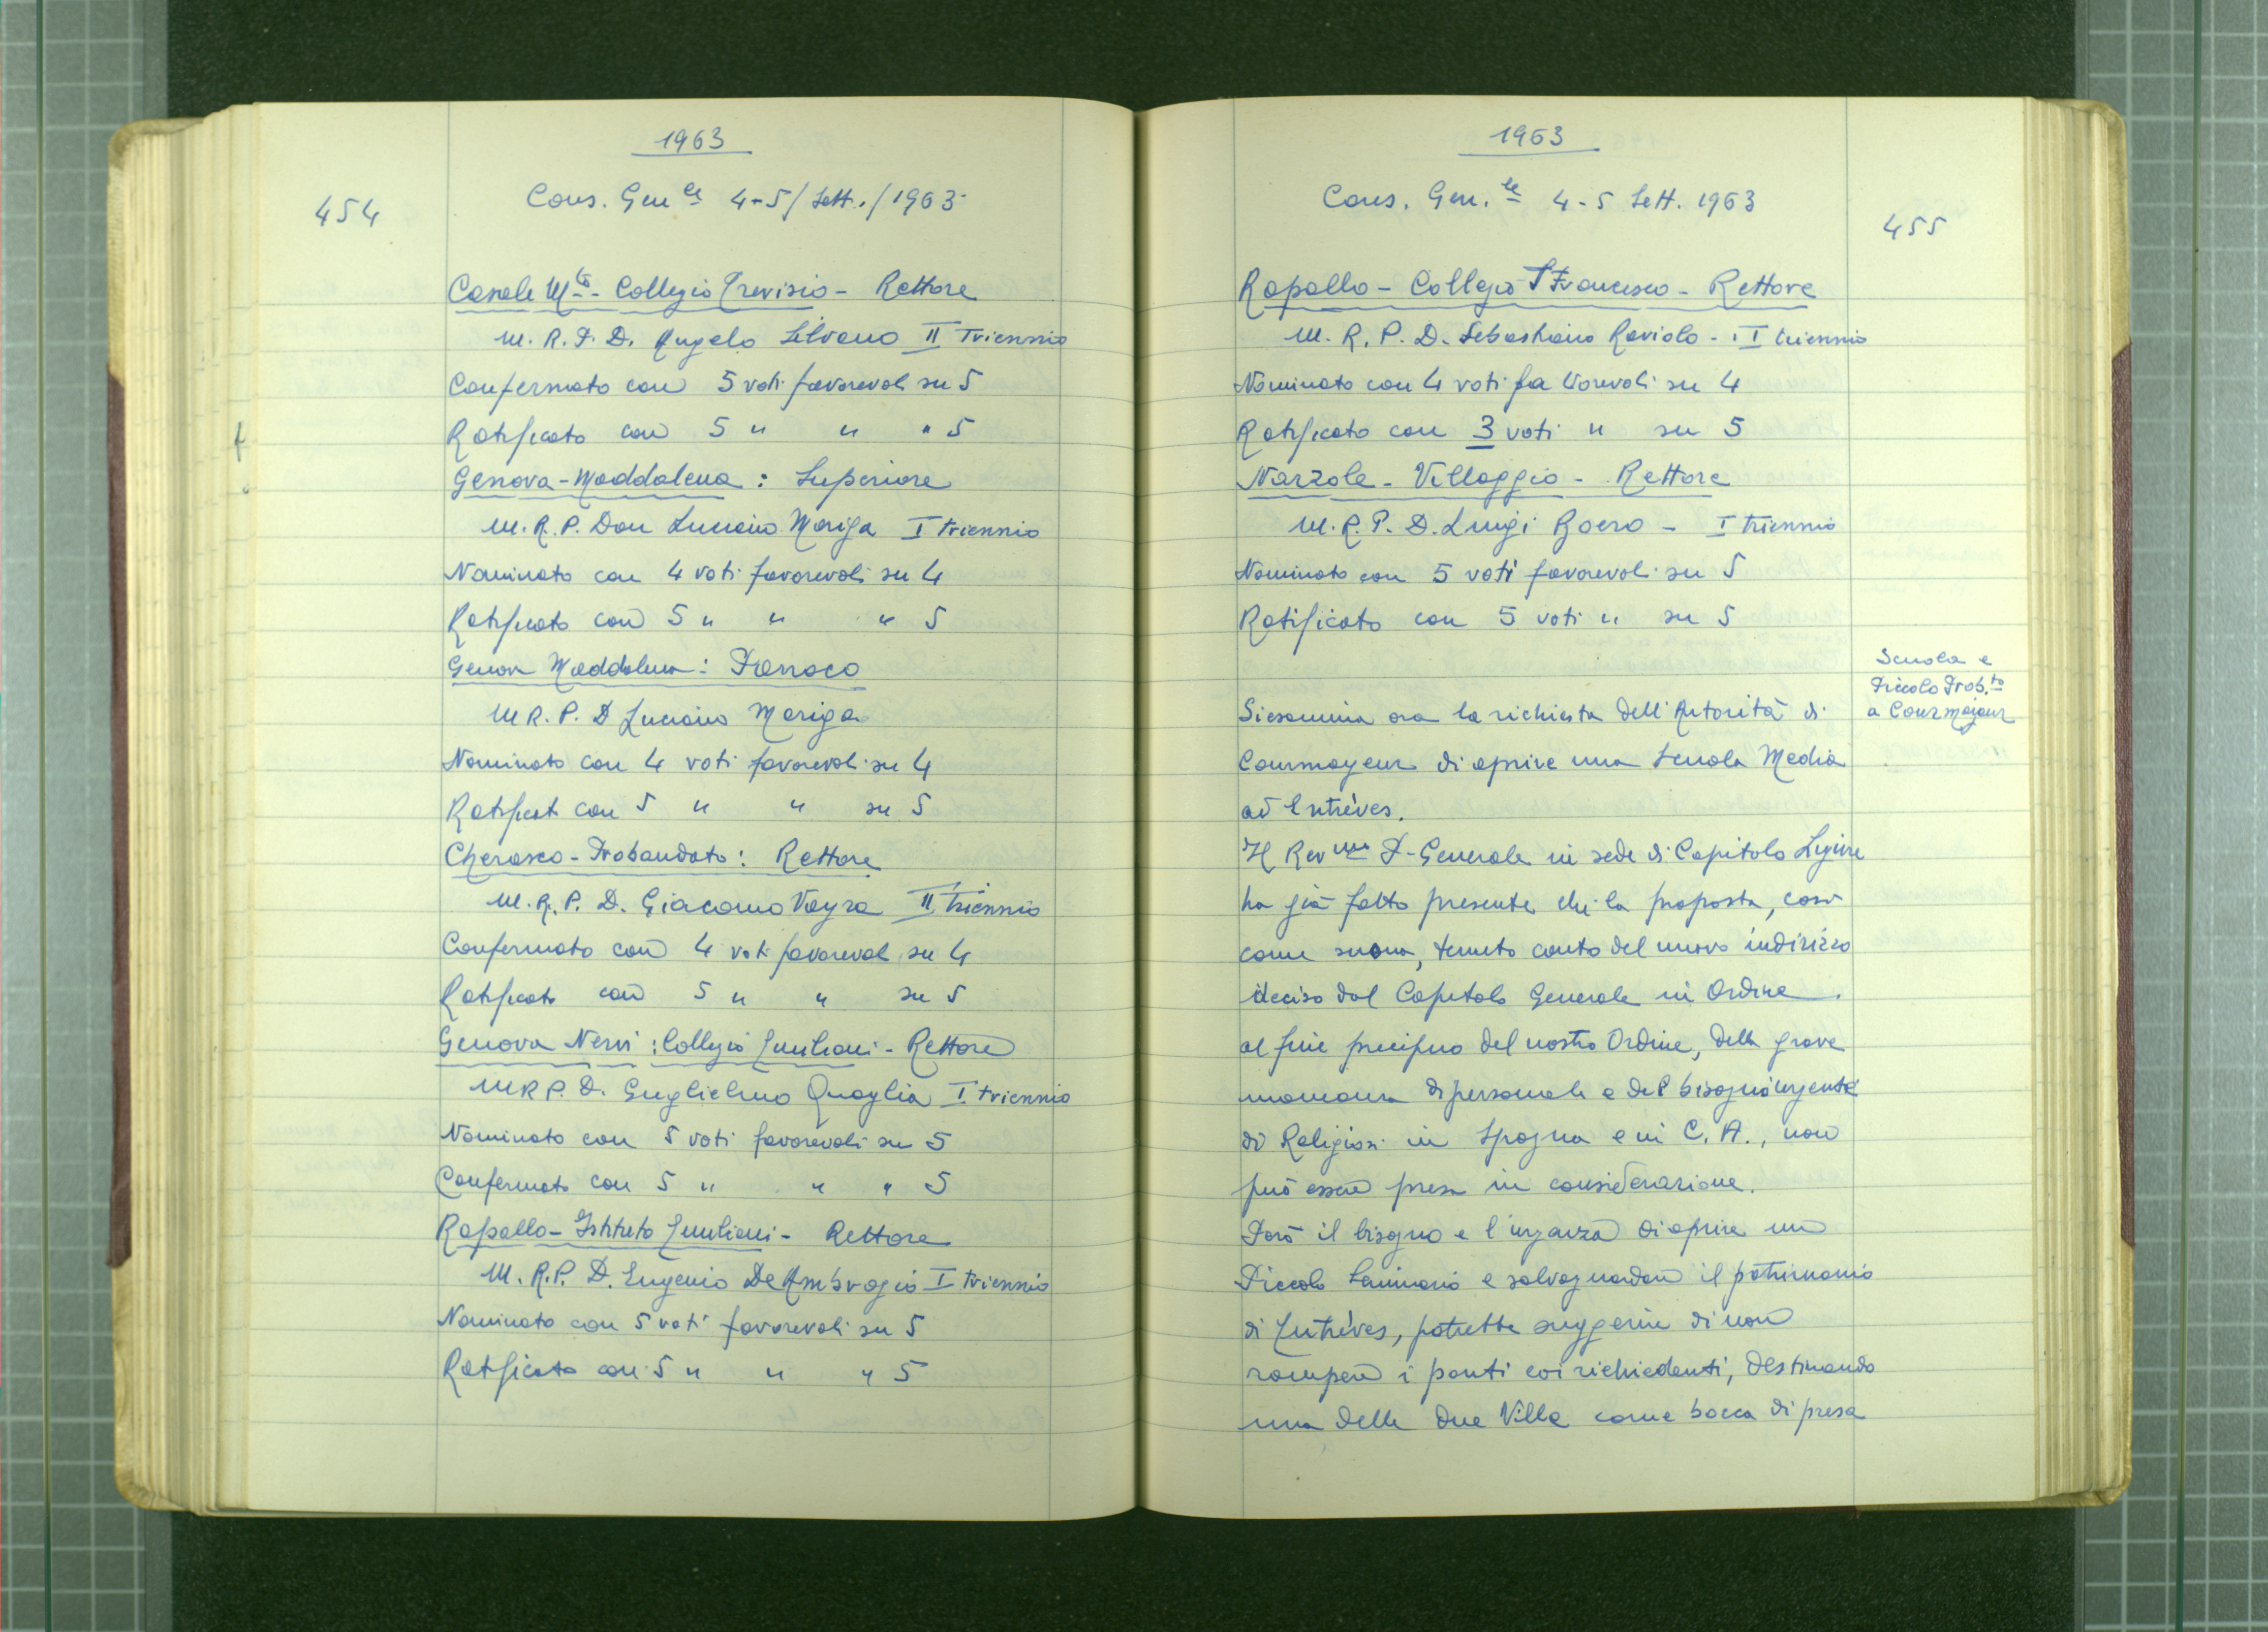 1963
454
Cons. Gen.le 4-5/Sett./1963
Casale M.to - Collegio Trevisio - Rettore
M.R.P.D. Angelo Silvano II Triennio
Confermato con 5 voti favorevoli su 5
Ratificato con 5 " " " 5
Genova-Maddalena: Superiore
M.R.P. Don Luciano Mariga I triennio
Nominato con 4 voti favorevoli su 4
Ratificato con 5 " " " 5
Genova Maddalena: Parroco
M.R.P.D Luciano Mariga
Nominato con 4 voti favorevoli su 4
Ratificat con 5 " " su 5
Cherasco-Probandato: Rettore
M.R.P.D. Giacomo Vayra II triennio
Confermato con 4 voti favorevol su 4
Ratificato con 5 " " su 5
Genova Nervi: Collegio Emiliani - Rettore
M.R.P.D. Guglielmo Quaglia I triennio
Nominato con 5 voti favorevoli su 5
Confermato con 5 " " " 5
Rapallo - Istituto Emiliani - Rettore
M.R.P.D. Eugenio De Ambrogio I triennio
Nominato con 5 voti favorevoli su 5
Ratificato con 5 " " " 5
1963
Cons. Gen.le 4-5 Sett. 1963
455
Rapallo - Collegio S Francesco - Rettore
M.R.P.D. Sebastiano Raviolo - I triennio
Nominato con 4 voti favorevoli su 4
Ratificato con 3 voti " su 5
Narzole - Villaggio - Rettore
M.R.P.D. Luigi Boero - I triennio
Nominato con 5 voti favorevoli su 5
Ratificato con 5 voti " su 5
Scuola e
Piccolo Prob.to
a Courmajeur
Si esamina ora la richiesta dell'Autorità di
Courmayeur di aprire una Scuola Media
ad Entrèves.
Il Rev.mo P. Generale in sede di Capitolo Ligure
ha già fatto presente che la proposta, così
come suona, tenuto conto del nuovo indirizzo
deciso dal Capitolo Generale in Ordine
al fine precipuo del nostro Ordine, della grave
mancanza di personale e del bisogno urgente
di Religiosi in Spagna e in C.A., non
può essere presa in considerazione.
Però il bisogno e l'urgenza di aprire un
Piccolo Seminario e salvaguardare il patrimonio
di Entrèves, potrebbe suggerire di non
rompere i ponti coi richiedenti, destinando
una delle due Ville come bocca di presa